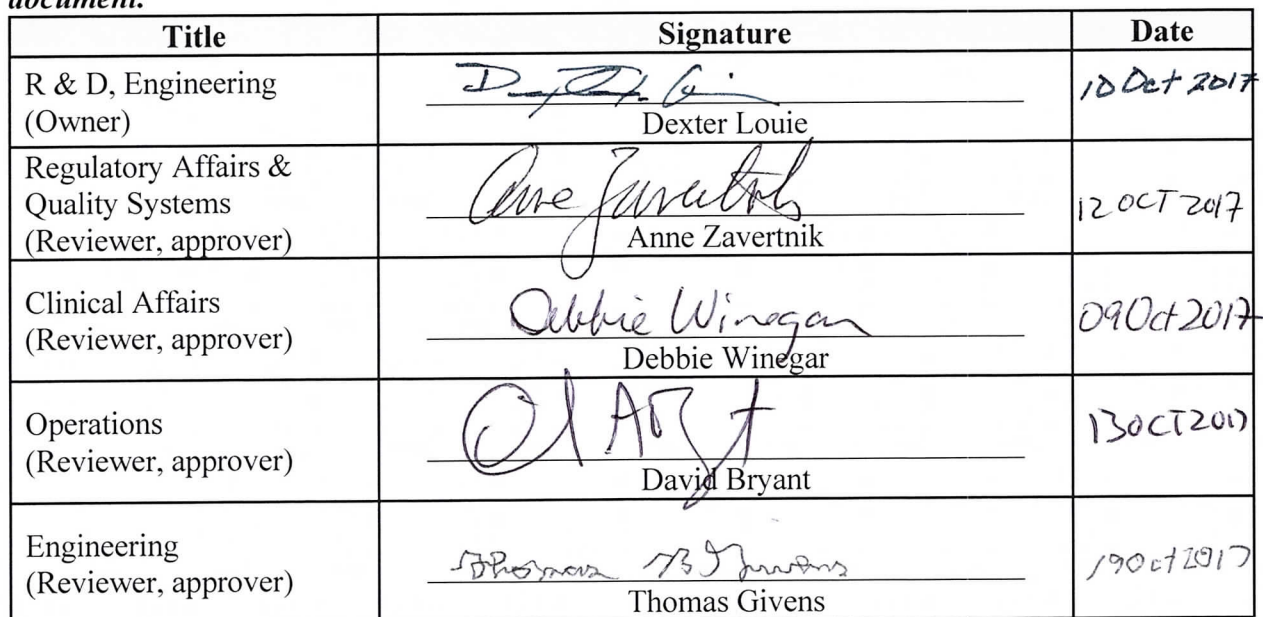 document.
Title Signature Date
R & D, Engineering
(Owner)
Dexter Louie
10 Oct 2017
Regulatory Affairs &
Quality Systems
(Reviewer, approver)
Anne Zavertnik
12 OCT 2017
Clinical Affairs
(Reviewer, approver)
Debbie Winegar
Debbie Winegar
09 Oct 2017
Operations
(Reviewer, approver)
David Bryant
13 OCT 2017
Engineering
(Reviewer, approver)
Thomas B Givens
Thomas Givens
19 Oct 2017